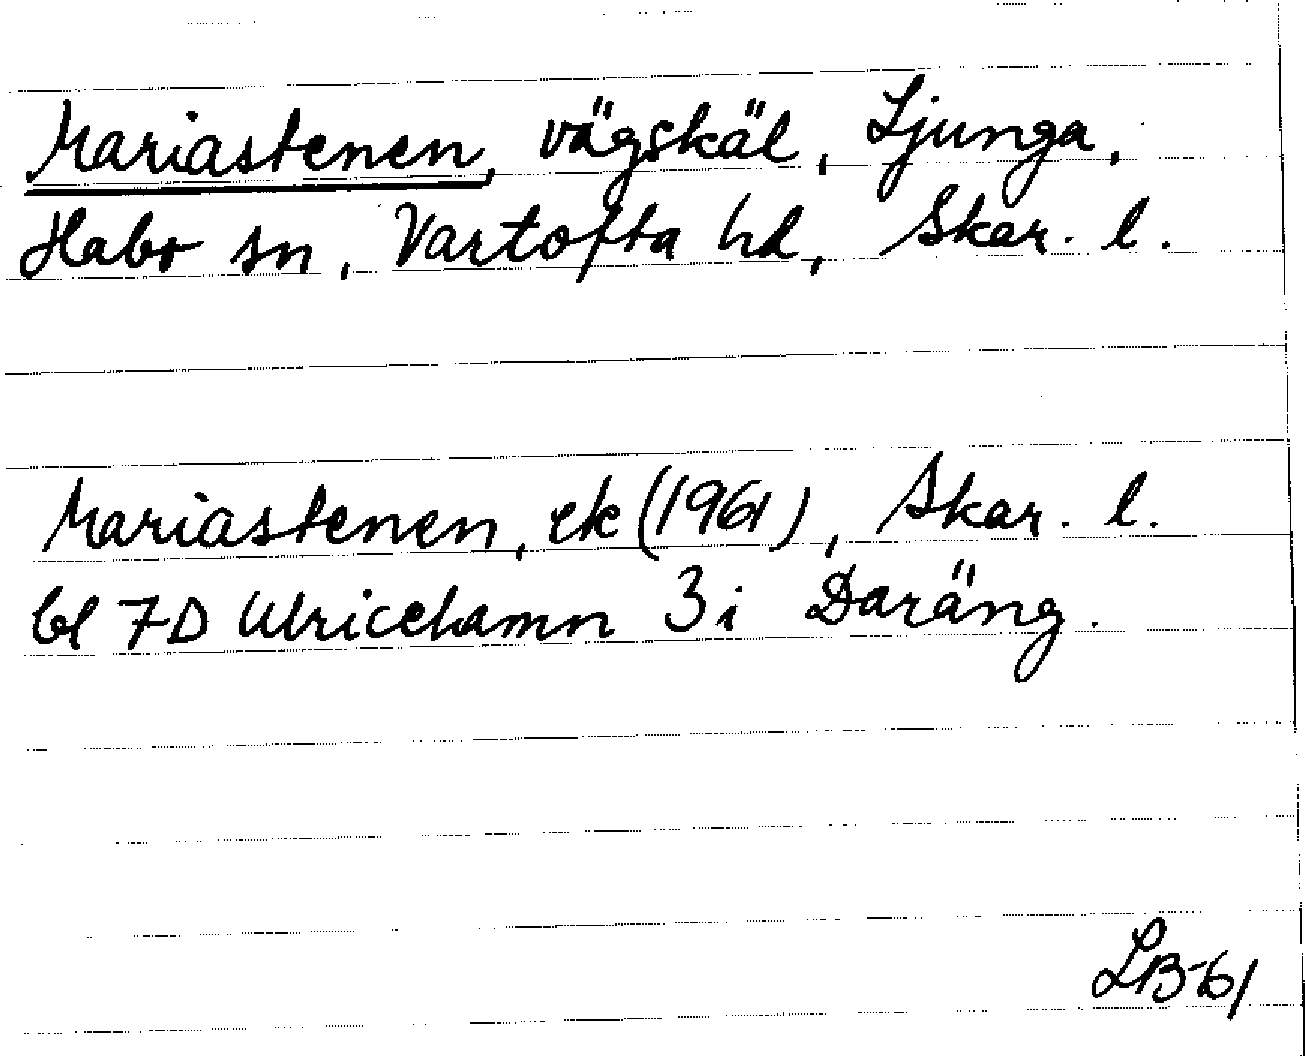 Mariastenen, vägskäl, Ljunga,
Habo sn, Vartofta hd, Skar. l.
Mariastenen, ek (1961), Skar. l.
bl 7D Ulricehamn 3i Daräng.
LB-61